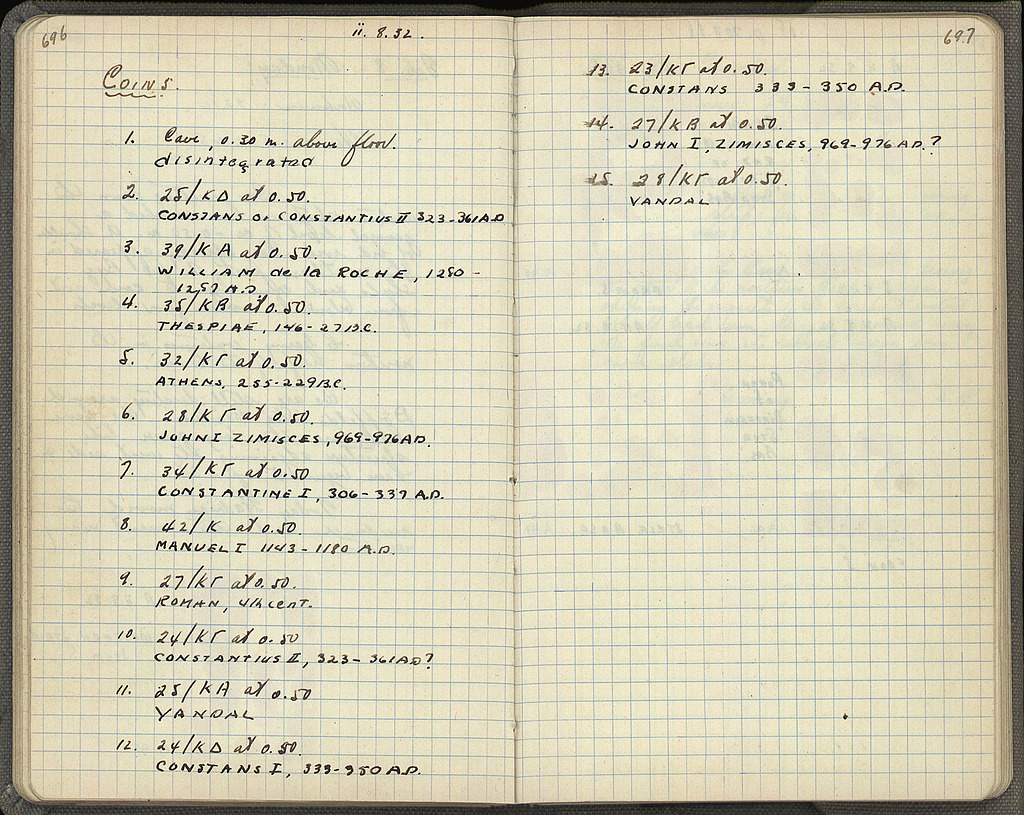 696
ii. 8.32.
COINS.
1. Cave, 0.30 m. above floor.
disintegrated
2. 25/ΚΔ at 0.50.
CONSTANS or CONSTANTIUS II 323-361 A.D
3. 39/ΚΑ at 0.50.
WILLIAM de la ROCHE, 1280-
1287 A.D
4. 35/ΚΒ at 0.50.
THESPIAE, 146-27 B.C.
5. 32/ΚΓ at 0.50.
ATHENS, 255-229 B.C.
6. 28/ΚΓ at 0.50.
JOHN I ZIMISCES, 969-976 A.D.
7. 34/ΚΓ at 0.50
CONSTANTINE I, 306-337 A.D.
8. 42/Κ at 0.50.
MANUEL I 1143-1180 A.D.
9. 27/ΚΓ at 0.50.
ROMAN, 4th cent.
10. 24/ΚΓ at 0.50
CONSTANTIUS II, 323-361 A.D?
11. 25/ΚΑ at 0.50
VANDAL
12. 24/ΚΔ at 0.50.
CONSTANS I, 333-350 A.D.
697
13. 23/ΚΓ at 0.50.
CONSTANS 333-350 A.D.
14. 27/ΚΒ at 0.50.
JOHN I, ZIMISCES, 969-976 A.D.?
15. 28/ΚΓ at 0.50.
VANDAL